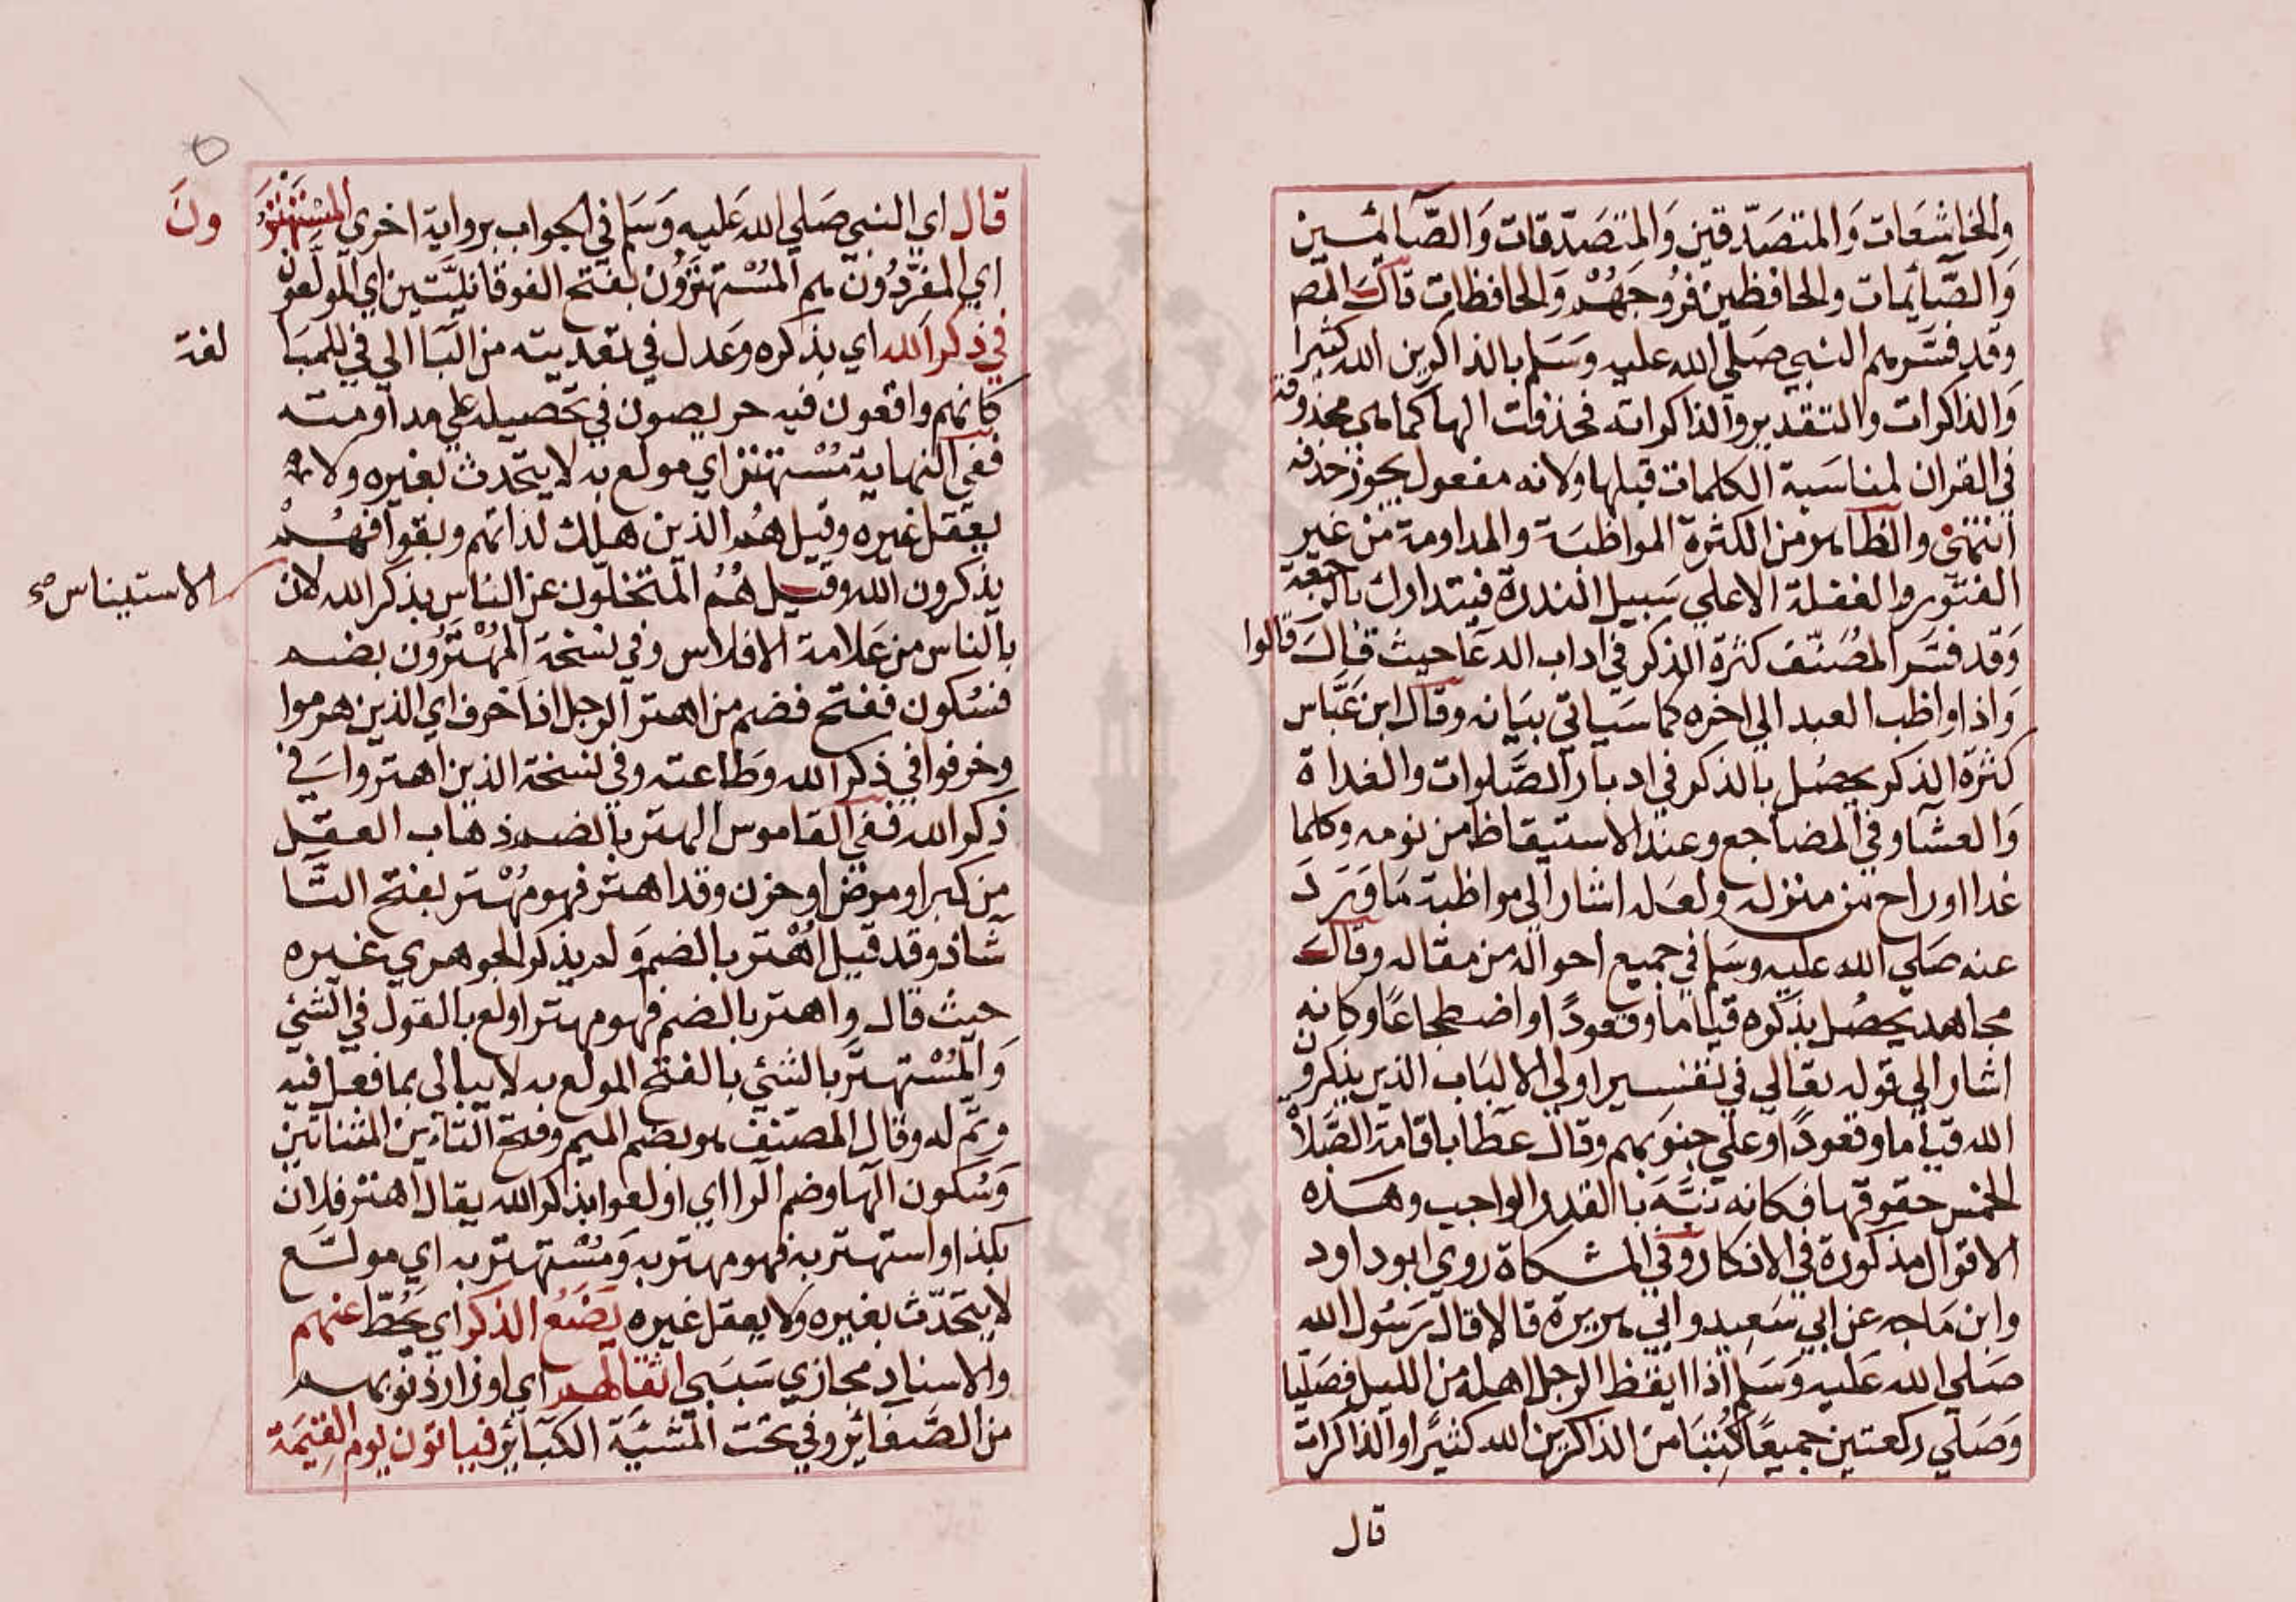 والخاشعات والمتصدقين والمتصدقات والصآئمين
والصآئمات والحافظين فروجهم والحافظات قال المص
وقد فسرهم النبي صلي الله عليه وسلم بالذاكرين الله كثيرا
والذاكرات والتقدير والذاكراته فحذفت الها كما هي محذوفة
في القران لمناسبة الكلمات قبلها ولانه مفعول يجوز حذفه
انتهي والظاهر من الكثرة المواظبة والمداومة من غير
الفتور والغفلة الا علي سبيل الندرة فيتدارك بالرجعة
وقد فسر المصنف كثرة الذكر في اداب الدعا حيث قال قالوا
واذا واظب العبد الي اخره كما سياتي بيانه وقال ابن عباس
كثرة الذكر يحصل بالذكر في ادبار الصلوات والغداة
والعشا وفي المضاجع وعند الاستيقاظ من نومه وكلما
غدا او راح من منزله ولعله اشار الي مواظبة ما ورد
عنه صلي الله عليه وسلم في جميع احواله من مقاله وقال
مجاهد يحصل بذكره قياما وقعودا واضطجاعا وكانه
اشار الي قوله تعالي في تفسير اولي الالباب الذين يذكرون
الله قياما وقعودا وعلي جنوبهم وقال عطا باقامة الصلاة
الخمس حقوقها فكانه نبه بالقدر الواجب وهذه
الاقوال مذكورة في الاذكار وفي المشكاة روي ابو داود
وابن ماجه عن ابي سعيد وابي هريرة قالا قال رسول الله
صلي الله عليه وسلم اذا ايقظ الرجل اهله من الليل فصليا
وصلي ركعتين جميعا كتبا من الذاكرين الله كثيرا والذاكرات
قال
قال اي النبي صلي الله عليه وسلم في الجواب برواية اخري المستهترون
اي المفردون هم المستهترون بفتح الفوقانيتين اي المولعون
في ذكر الله اي بذكره وعدل في تعديته من البا الي في للمبالغة
كانهم واقعون فيه حريصون في تحصيله علي مداومته
ففي النهاية مستهتر اي مولع به لا يتحدث بغيره ولا
يعقل غيره وقيل هم الذين هلك لذاتهم وبقوا فهم
يذكرون الله وقيل هم المتخلون عن الناس بذكر الله لان الاستيناس صح
بالناس من علامة الافلاس وفي نسخة المهترون بضم
فسكون ففتح فضم من اهتر الرجل اذا خرف اي الذين هرموا
وخرفوا في ذكر الله وطاعته وفي نسخة الذين اهتروا في
ذكر الله ففي القاموس الهتر بالضم ذهاب العقل
من كبر او مرض او حزن وقد اهتر فهو مهتر بفتح التا
شاذ وقد قيل اهتر بالضم ولم يذكر الجوهري غيره
حيث قال واهتر بالضم فهو مهتر اولع بالقول في الشئي
والمستهتر بالشئي بالفتح المولع به لا يبالي بما فعل فيه
وتم له وقال المصنف هو بضم الميم وفتح التآين المثناتين
وسكون الها وضم الرا اي اولعوا بذكر الله يقال اهتر فلان
بكذا واستهتر به فهو مهتر به ومستهتر به اي مولع
لا يتحدث بغيره ولا يعقل غيره يضع الذكر اي يحط عنهم
والاسناد مجازي سببي اثقالهم اي اوزار ذنوبهم
من الصغائر وفي تحت المشية الكبائر فياتون يوم القيمة